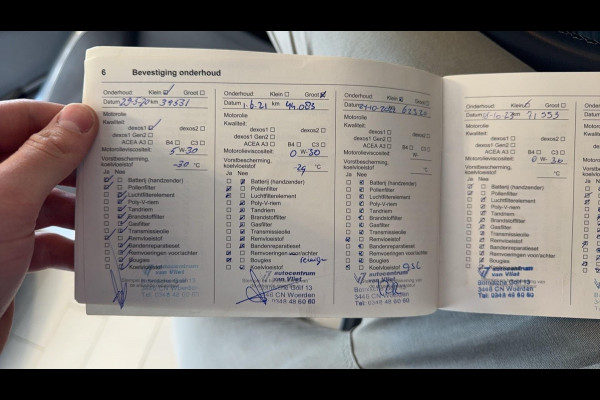 6 Bevestiging onderhoud
Onderhoud: Klein Groot
Datum 29-5-20 km 39531
Motorolie
Kwaliteit:
dexos1 dexos2
dexos1 Gen2
ACEA A3 B4 C3
Motorolieviscositeit: 5 W-30
Vorstbescherming, koelvloeistof -30 °C
Ja Nee
Batterij (handzender)
Pollenfilter
Luchtfilterelement
Poly-V-riem
Tandriem
Brandstoffilter
Gasfilter
Transmissieolie
Remvloeistof
Bandenreparatieset
Remvoeringen voor/achter
Bougies
Koelvloeistof
autocentrum
van Vliet
3446 CN Woerden
Tel: 0348 48 60 60
Onderhoud: Klein Groot
Datum 1.6.21 km 44.003
Motorolie
Kwaliteit:
dexos1 dexos2
dexos1 Gen2
ACEA A3 B4 C3
Motorolieviscositeit: 0 W-30
Vorstbescherming, koelvloeistof -29 °C
Ja Nee
Batterij (handzender)
Pollenfilter
Luchtfilterelement
Poly-V-riem
Tandriem
Brandstoffilter
Gasfilter
Transmissieolie
Remvloeistof
Bandenreparatieset
Remvoeringen voor/achter
Bougies
Koelvloeistof
autocentrum
van Vliet
3446 CN Woerden
0348 48 60 60
Onderhoud: Klein Groot
Datum km
Motorolie
Kwaliteit:
dexos1 dexos2
dexos1 Gen2
ACEA A3 B4 C3
Motorolieviscositeit: W-
Vorstbescherming, koelvloeistof °C
Ja Nee
Batterij (handzender)
Pollenfilter
Luchtfilterelement
Poly-V-riem
Tandriem
Brandstoffilter
Gasfilter
Transmissieolie
Remvloeistof
Bandenreparatieset
Remvoeringen voor/achter
Bougies
Koelvloeistof
autocentrum
van Vliet
3446 CN Woerden
Tel: 0348 48 60 60
Onderhoud: Klein Groot
Datum km 71555
Motorolie
Kwaliteit:
dexos1 dexos2
dexos1 Gen2
ACEA A3 B4 C3
Motorolieviscositeit: 0 W-30
Vorstbescherming, koelvloeistof °C
Ja Nee
Batterij (handzender)
Pollenfilter
Luchtfilterelement
Poly-V-riem
Tandriem
Brandstoffilter
Gasfilter
Transmissieolie
Remvloeistof
Bandenreparatieset
Remvoeringen voor/achter
Bougies
Koelvloeistof
autocentrum
van Vliet
3446 CN Woerden
Tel: 0348 48 60 60